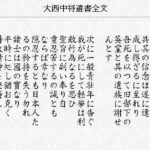 大西中将遺書全文
共其の信念は遂に達
成し得ざるに至れり
吾死を以て旧部下の
英霊と其の遺族に謝せ
んとす
次に一般青壮年に告ぐ
我が死にして軽挙は利
敵行為なるを思い
聖旨に副い奉り自重
忍苦するの誡とも
ならば幸なり
隠忍するとも日本人た
るの矜持を失う勿れ
諸子は國の寶なり
平時に處し猶お克く